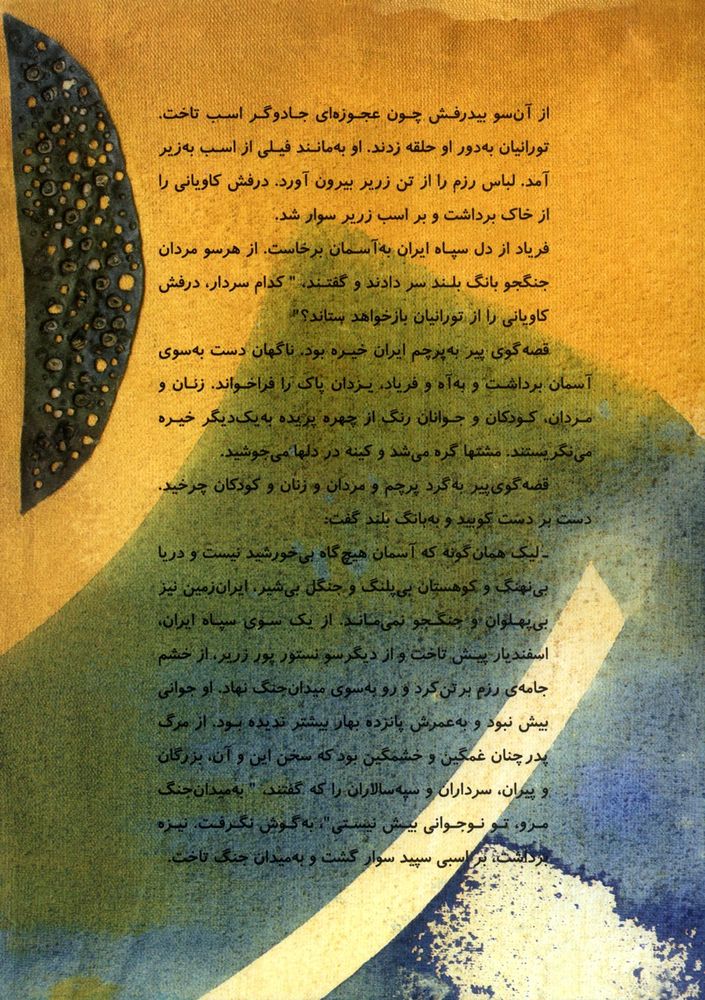 از آن‌سو بیدرفش چون عجوزه‌ای جادوگر اسب تاخت.
تورانیان به‌دور او حلقه زدند. او به‌مانند فیلی از اسب به‌زیر
آمد. لباس رزم را از تن زریر بیرون آورد. درفش کاویانی را
از خاک برداشت و بر اسب زریر سوار شد.
فریاد از دل سپاه ایران به‌آسمان برخاست. از هرسو مردان
جنگجو بانگ بلند سر دادند و گفتند، " کدام سردار، درفش
کاویانی را از تورانیان بازخواهد ستاند؟"
قصه‌گوی پیر به‌پرچم ایران خیره بود. ناگهان دست به‌سوی
آسمان برداشت و به‌آه و فریاد، یزدان پاک را فراخواند. زنان و
مردان، کودکان و جوانان رنگ از چهره پریده به‌یک‌دیگر خیره
می‌نگریستند. مشتها گره می‌شد و کینه در دلها می‌جوشید.
قصه‌گوی‌پیر به‌گرد پرچم و مردان و زنان و کودکان چرخید.
دست بر دست کوبید و به‌بانگ بلند گفت:
ـ لیک همان‌گونه که آسمان هیچ‌گاه بی‌خورشید نیست و دریا
بی‌نهنگ و کوهستان بی‌پلنگ و جنگل بی‌شیر، ایران‌زمین نیز
بی‌پهلوان و جنگجو نمی‌ماند. از یک سوی سپاه ایران،
اسفندیار پیش تاخت و از دیگرسو نستور پور زریر، از خشم
جامه‌ی رزم بر تن کرد و رو به‌سوی میدان‌جنگ نهاد. او جوانی
بیش نبود و به‌عمرش پانزده بهار بیشتر ندیده بود. از مرگ
پدر چنان غمگین و خشمگین بود که سخن این و آن، بزرگان
و پیران، سرداران و سپه‌سالاران را که گفتند، " به‌میدان‌جنگ
مرو، تو نوجوانی بیش نیستی"، به‌گوش نگرفت. نیزه
برداشت، بر اسبی سپید سوار گشت و به‌میدان جنگ تاخت.